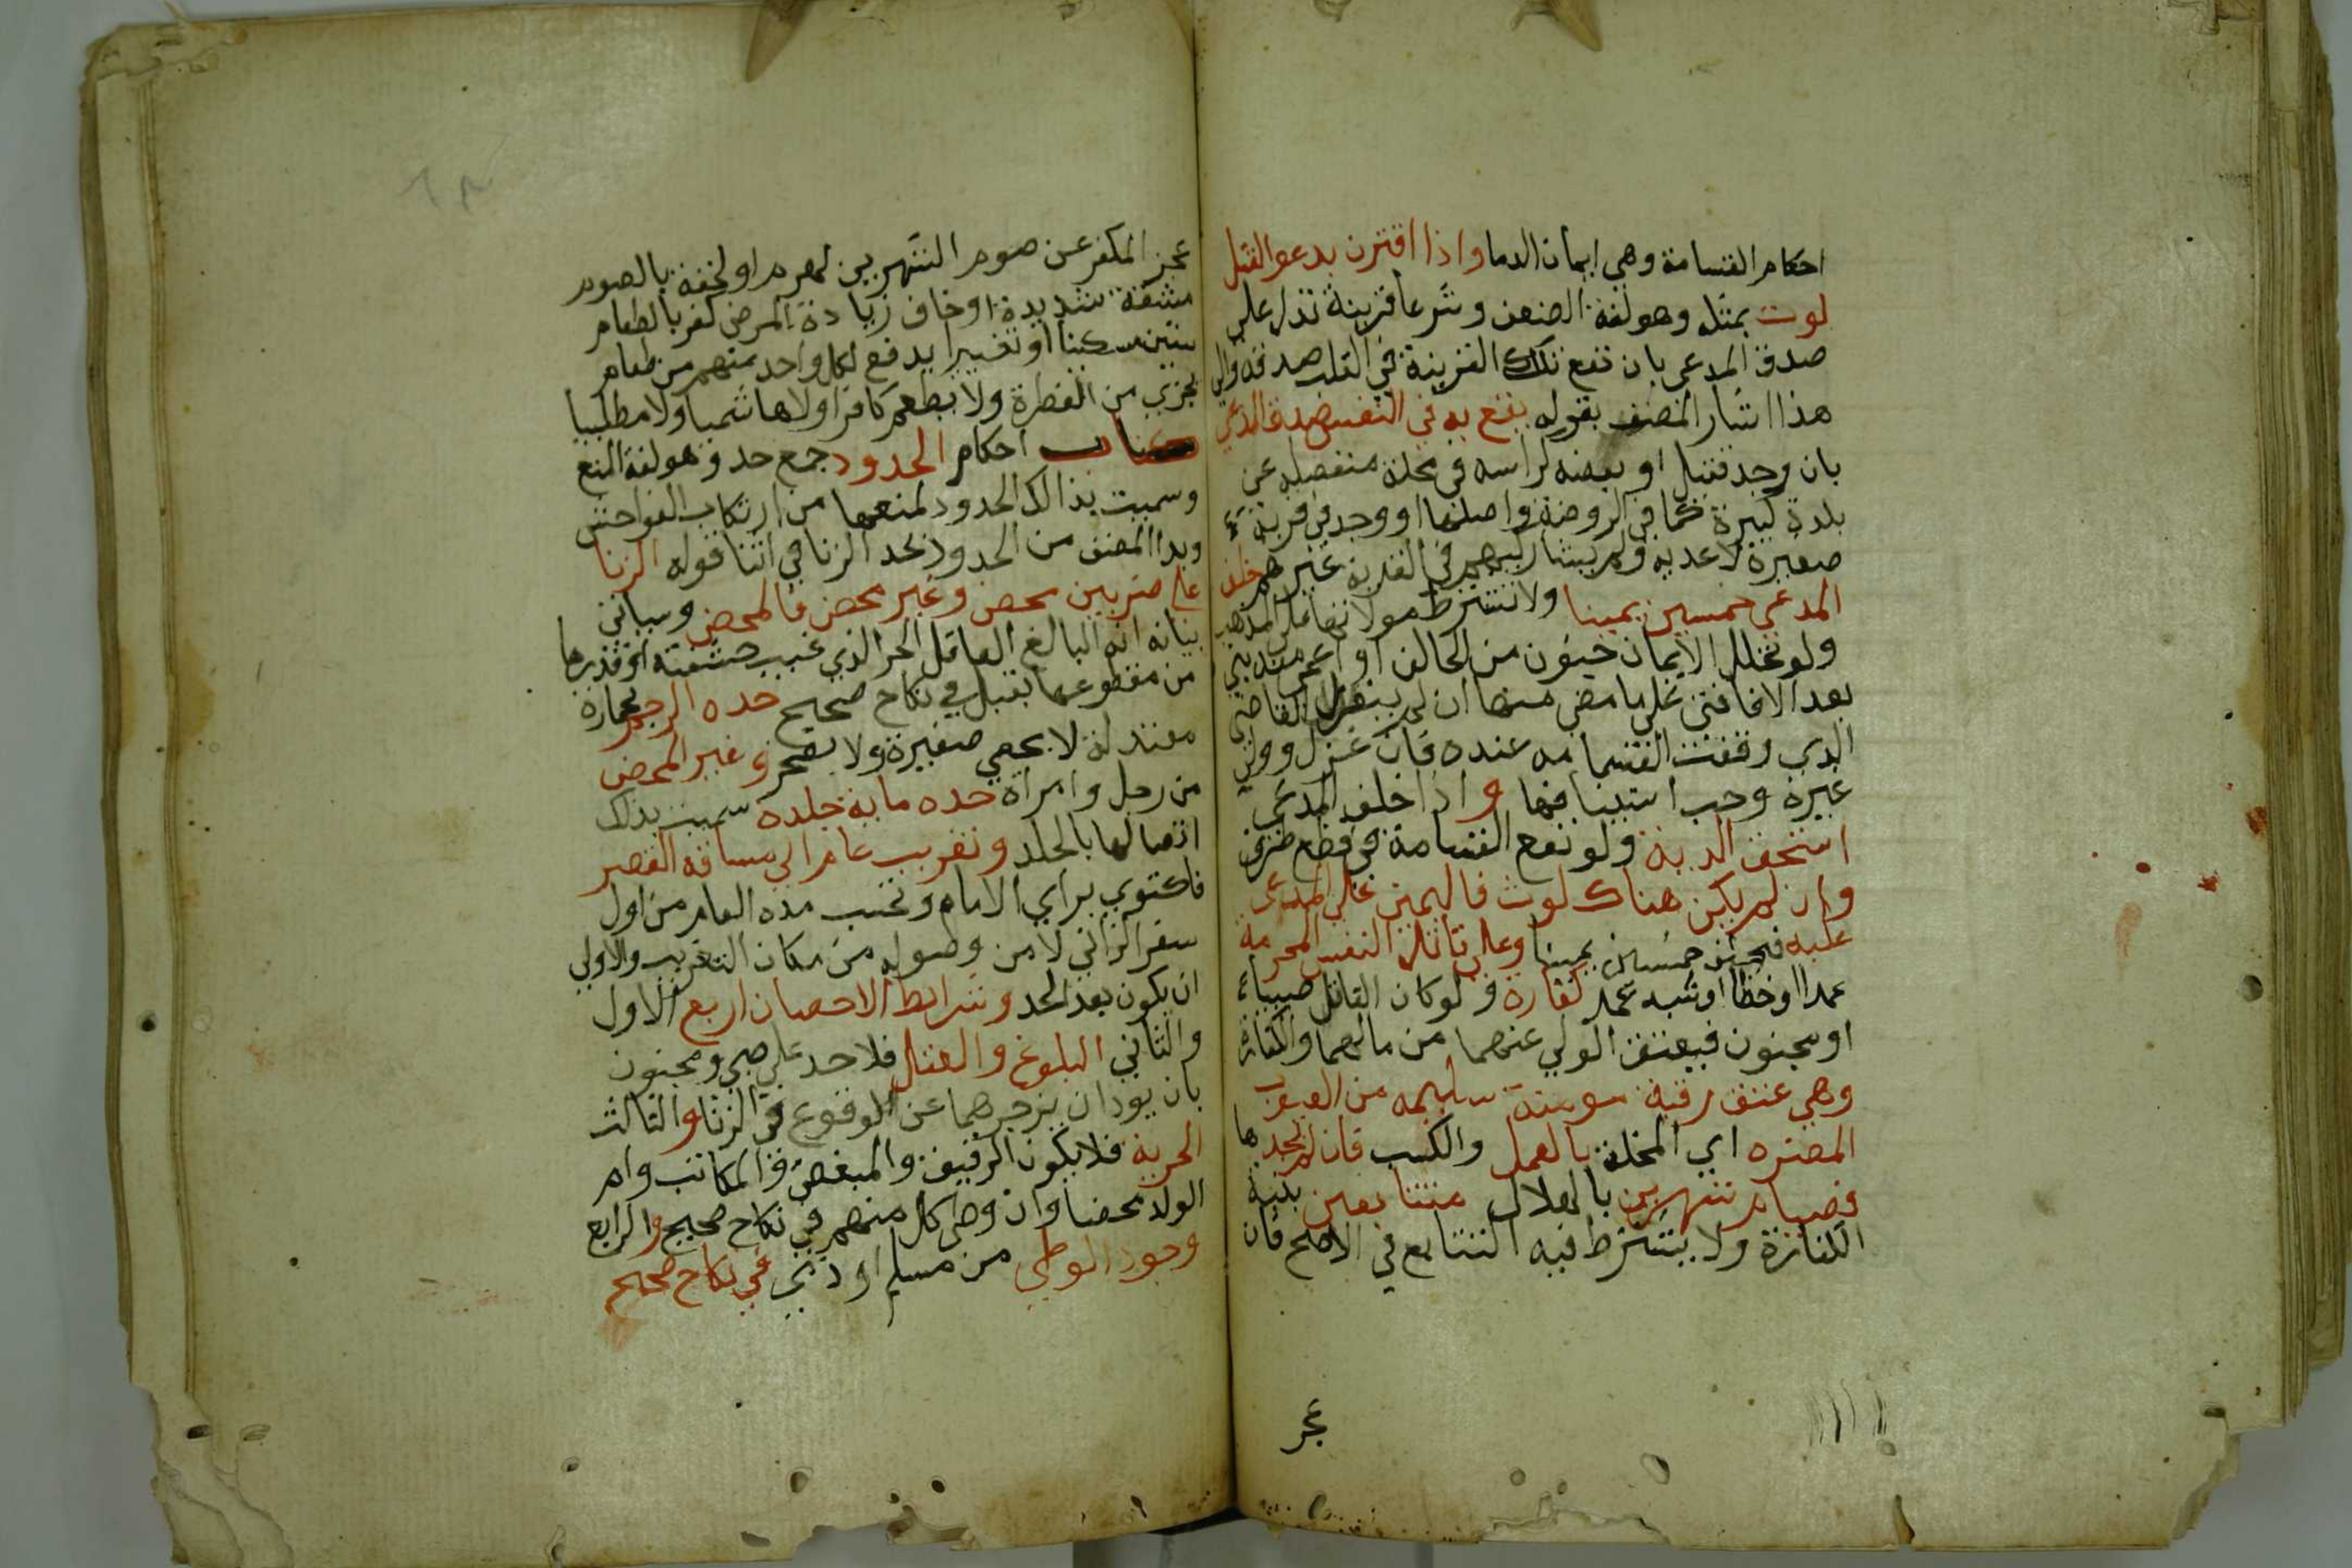 احكام القسامة وهي ايمان الدما واذا اقترن بدعوالقتل
لوث بمثلثه وهو لغة الضعف وشرعا قرينة تدل على
صدق المدعى بان تقع تلك القرينة في القلب صدقه والى
هذا اشار المصنف بقوله يقع به في النفس صدق المدعي
بان وجد قتيل او بعضه كراسه في محلة منفصلة عن
بلدة كبيرة كما في الروضة واصلها او وجد في قرية
صغيرة لاعديه ولم يشاركهم في القرية غيرهم حلف
المدعي خمسين يمينا ولا تشترط موالاتها على المذهب
ولو تخلل الايمان جنون من الحالف او اغمي منه بني
بعد الافاقة على ما مضى منها ان لم ينعزل القاضي
الذي وقعت القسامه عنده فان عزل وولي
غيره وجب استينافها واذا حلف المدعي
استحق الدية ولو تقع القسامة في قطع طرف
وان لم يكن هناك لوث فاليمين على المدعى
عليه فيحلف خمسين يمينا وعلى قاتل النفس المحرمة
عمدا اوخطأ اوشبه عمد كفارة ولوكان القاتل صبيا
او مجنون فيعتق الولي عنهما من مالهما والكفارة
وهي عتق رقبة مومنة سليمه من العيوب
المضره اي المخلة بالعمل والكسب فان لم يجدها
فصيام شهرين بالهلال متتابعين بنية
الكفارة ولا يشترط فيه التتابع في الاصح فان
عجز
عجز المكفر عن صوم الشهرين لهرم او لحقه بالصوم
مشقة شديدة اوخاف زيادة المرض كفر بالطعام
ستين مسكينا او فقيرا يدفع لكل واحد منهم من طعام
يجزي من الفطرة ولا يطعم كافرا ولا هاشميا ولا مطلبيا
كتاب احكام الحدود جمع حد وهو لغة المنع
وسميت بذالك الحدود لمنعها من ارتكاب الفواحش
وبدا المصنف من الحدود بحد الزنا في اثنا قوله الزنا
على ضربين محصن وغير محصن فالمحصن وسياتي
بيانه انه البالغ العاقل الحر الذي غيب حشفته او قدرها
من مقطوعها بقبل في نكاح صحيح حده الرجم بحجارة
معتدلة لا بحصي صغيرة ولا بصخر وغير المحصن
من رجل وامراة حده ماية جلدة سميت بذلك
اتصالها بالجلد وتغريب عام الى مسافة القصر
فاكثر براي الامام وتحسب مدة العام من اول
سفر الزاني لا من وصوله من مكان التغريب والاولي
ان يكون بعد الحد وشرايط الاحصان اربع الاول
والثاني البلوغ والعقل فلا حد على صبي ومجنون
بان يودان بزجرهما عن الوقوع في الزنا والثالث
الحرية فلا يكون الرقيق والمبعض والمكاتب وام
الولد محصنا وان وطي كل منهم في نكاح صحيح والرابع
وجود الوطي من مسلم او ذمي في نكاح صحيح